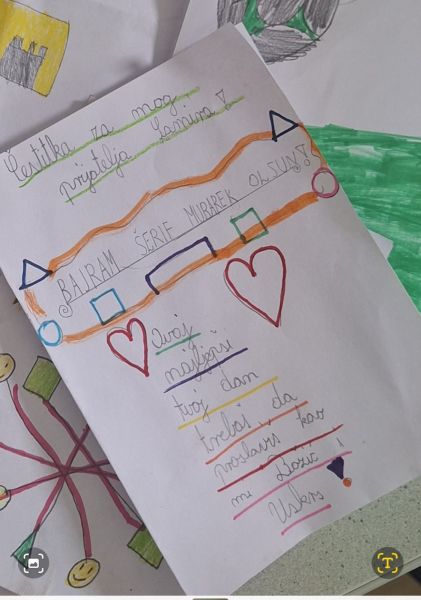 Čestitka za mog
prijatelja Samira
BAJRAM ŠERIF MUBAREK OLSUN!
Ovaj
najljepši
tvoj dan
trebaš da
proslaviš kao
mi Božić i
Uskrs